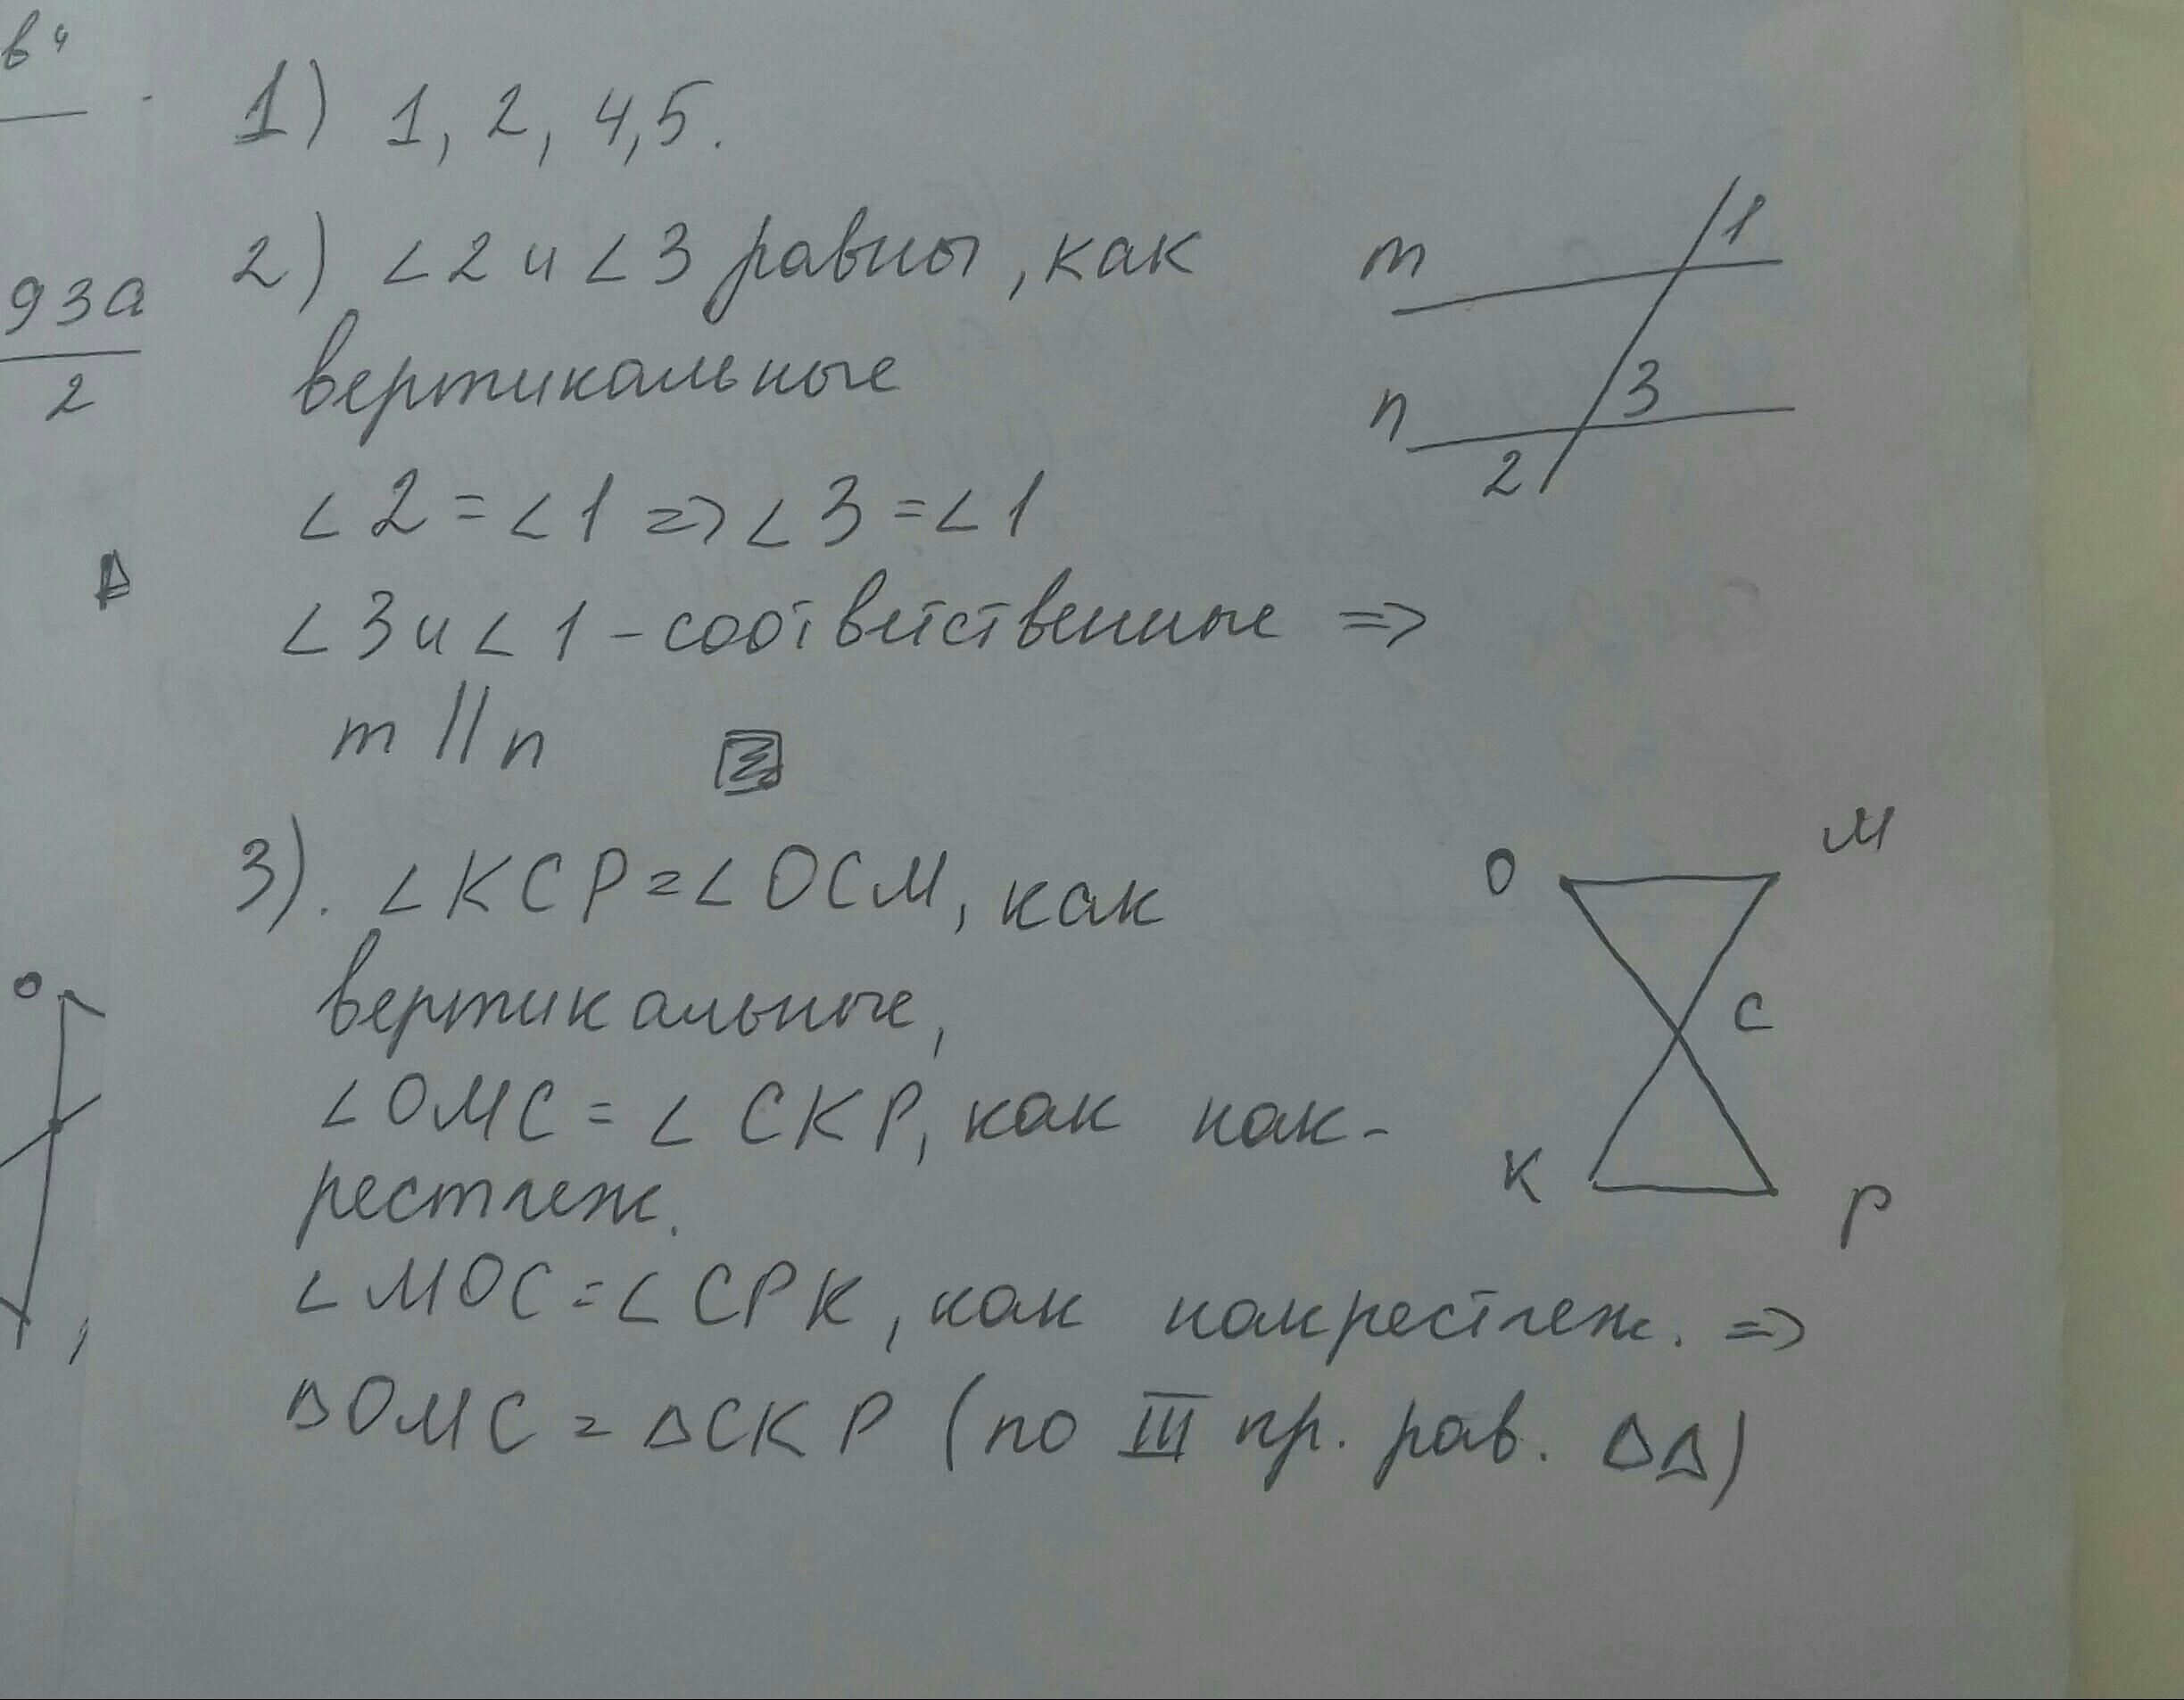 в ч
93а
2
1) 1, 2, 4, 5.
2) ∠2 и ∠3 равны, как
вертикальные
∠2 = ∠1 => ∠3 = ∠1
∠3 и ∠1 – соответственные =>
m || n
m
1
n
3
2
3). ∠KCP = ∠OCM, как
вертикальные,
∠OMC = ∠CKP, как нак-
рестлеж.
∠MOC = ∠CPK, как накрестлеж. =>
ΔOMC = ΔCKP (по III пр. рав. ΔΔ)
O
M
C
K
P
O